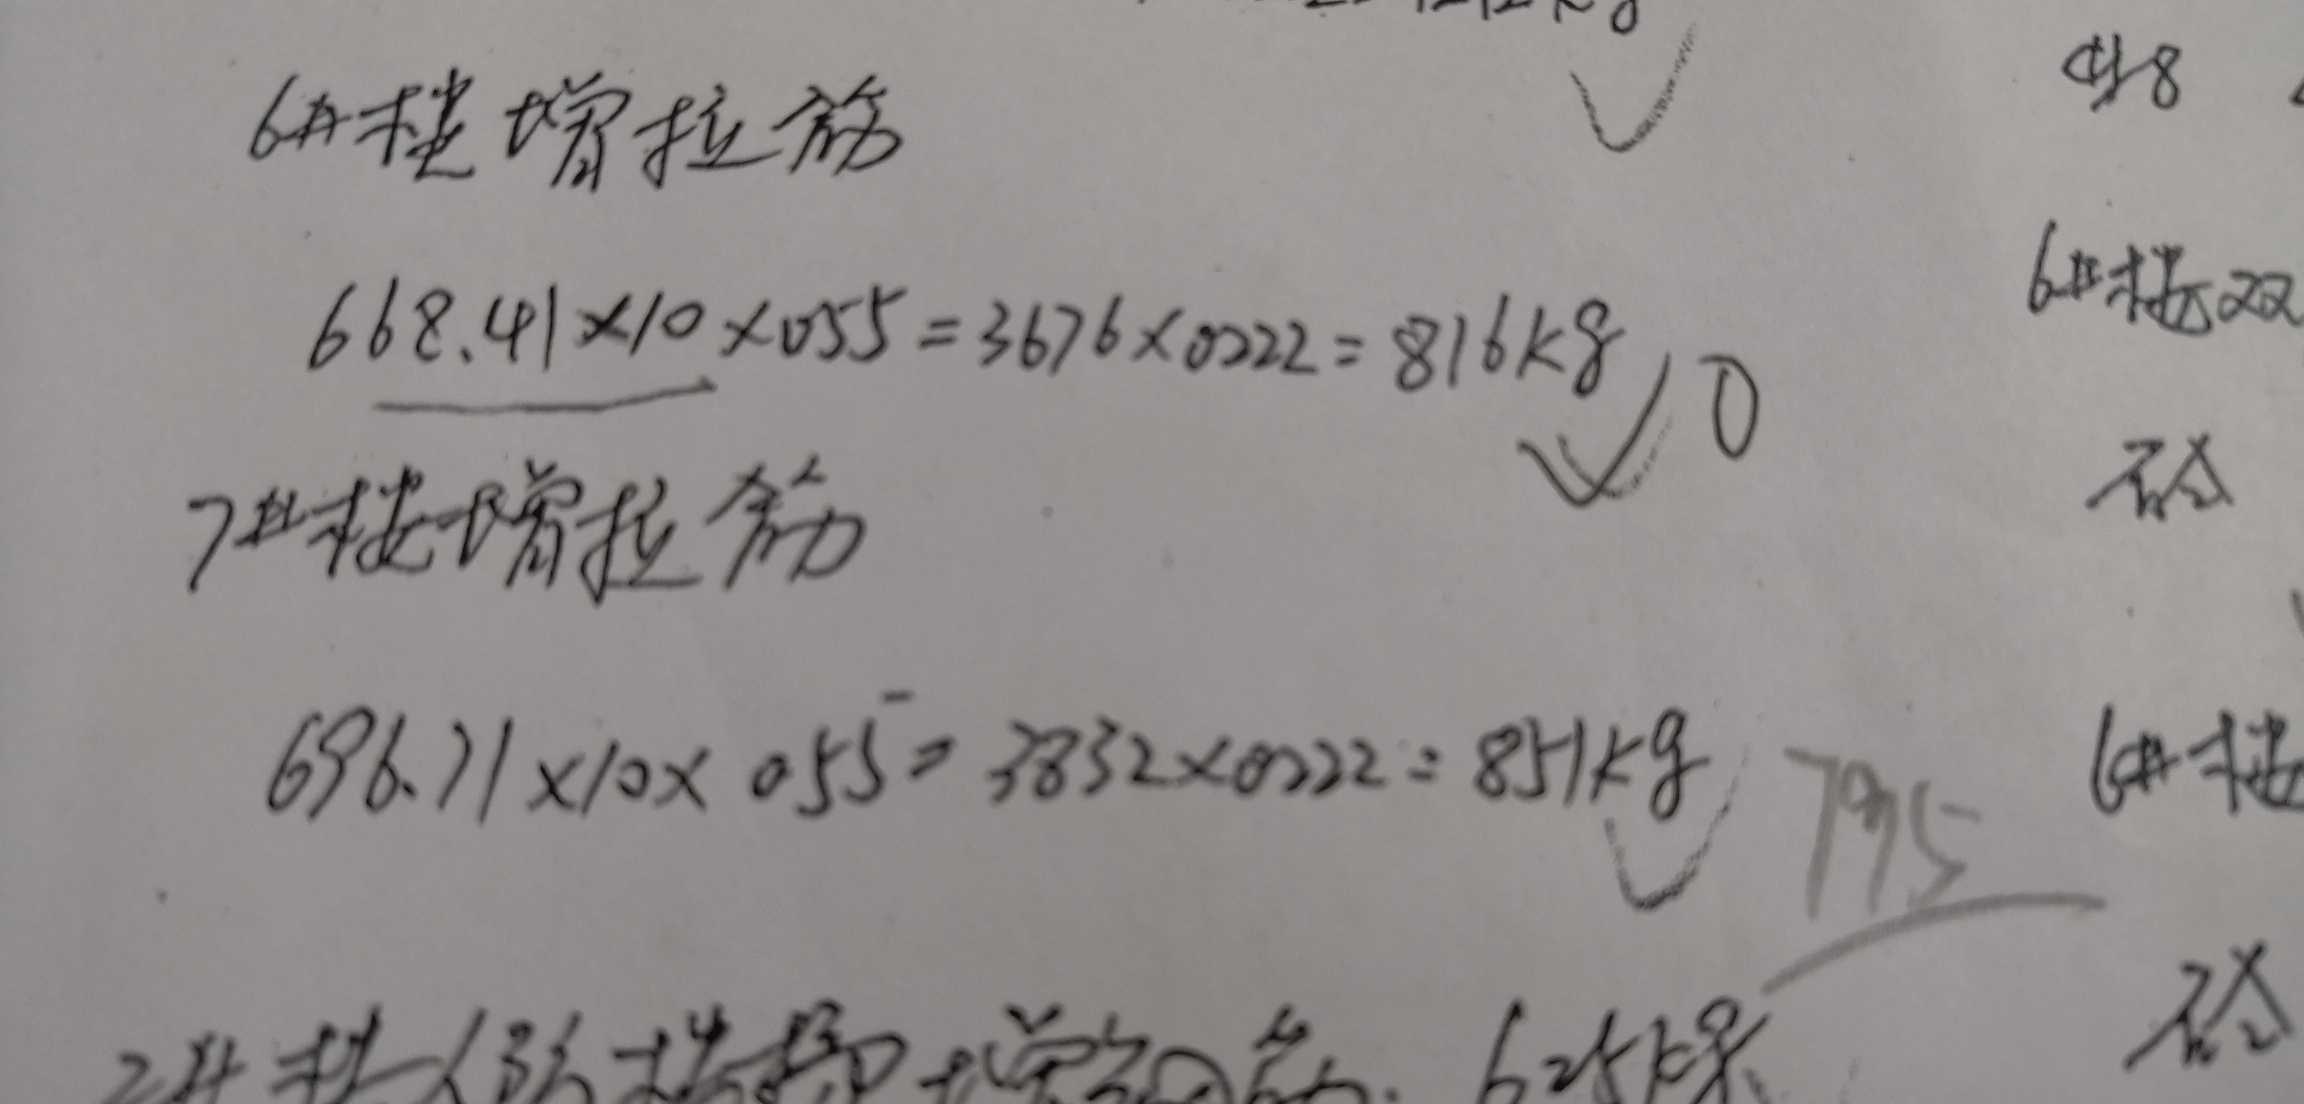 6#楼增拉筋
668.41×10×055=3676×0222=816kg
0
7#楼增拉筋
696.71×10×055=3832×0222=851kg
795
2#楼 625kg
6#楼22
砼
6#楼
砼